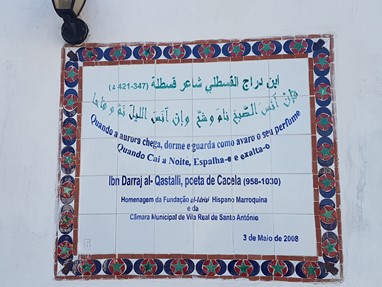 ابن دراج القسطلي شاعر قسطلة (347-421 ه)
فإن آنس الصبح نام وشح وإن آنس الليل نم و
Quando a aurora chega, dorme e guarda como avaro o seu perfume
Quando Cai a Noite, Espalha-e e exalta-o
Ibn Darraj al- Qastalli, poeta de Cacela (958-1030)
Homenagem da Fundação al-Idrisi Hispano Marroquina
e da
Câmara Municipal de Vila Real de Santo António
3 de Maio de 2008